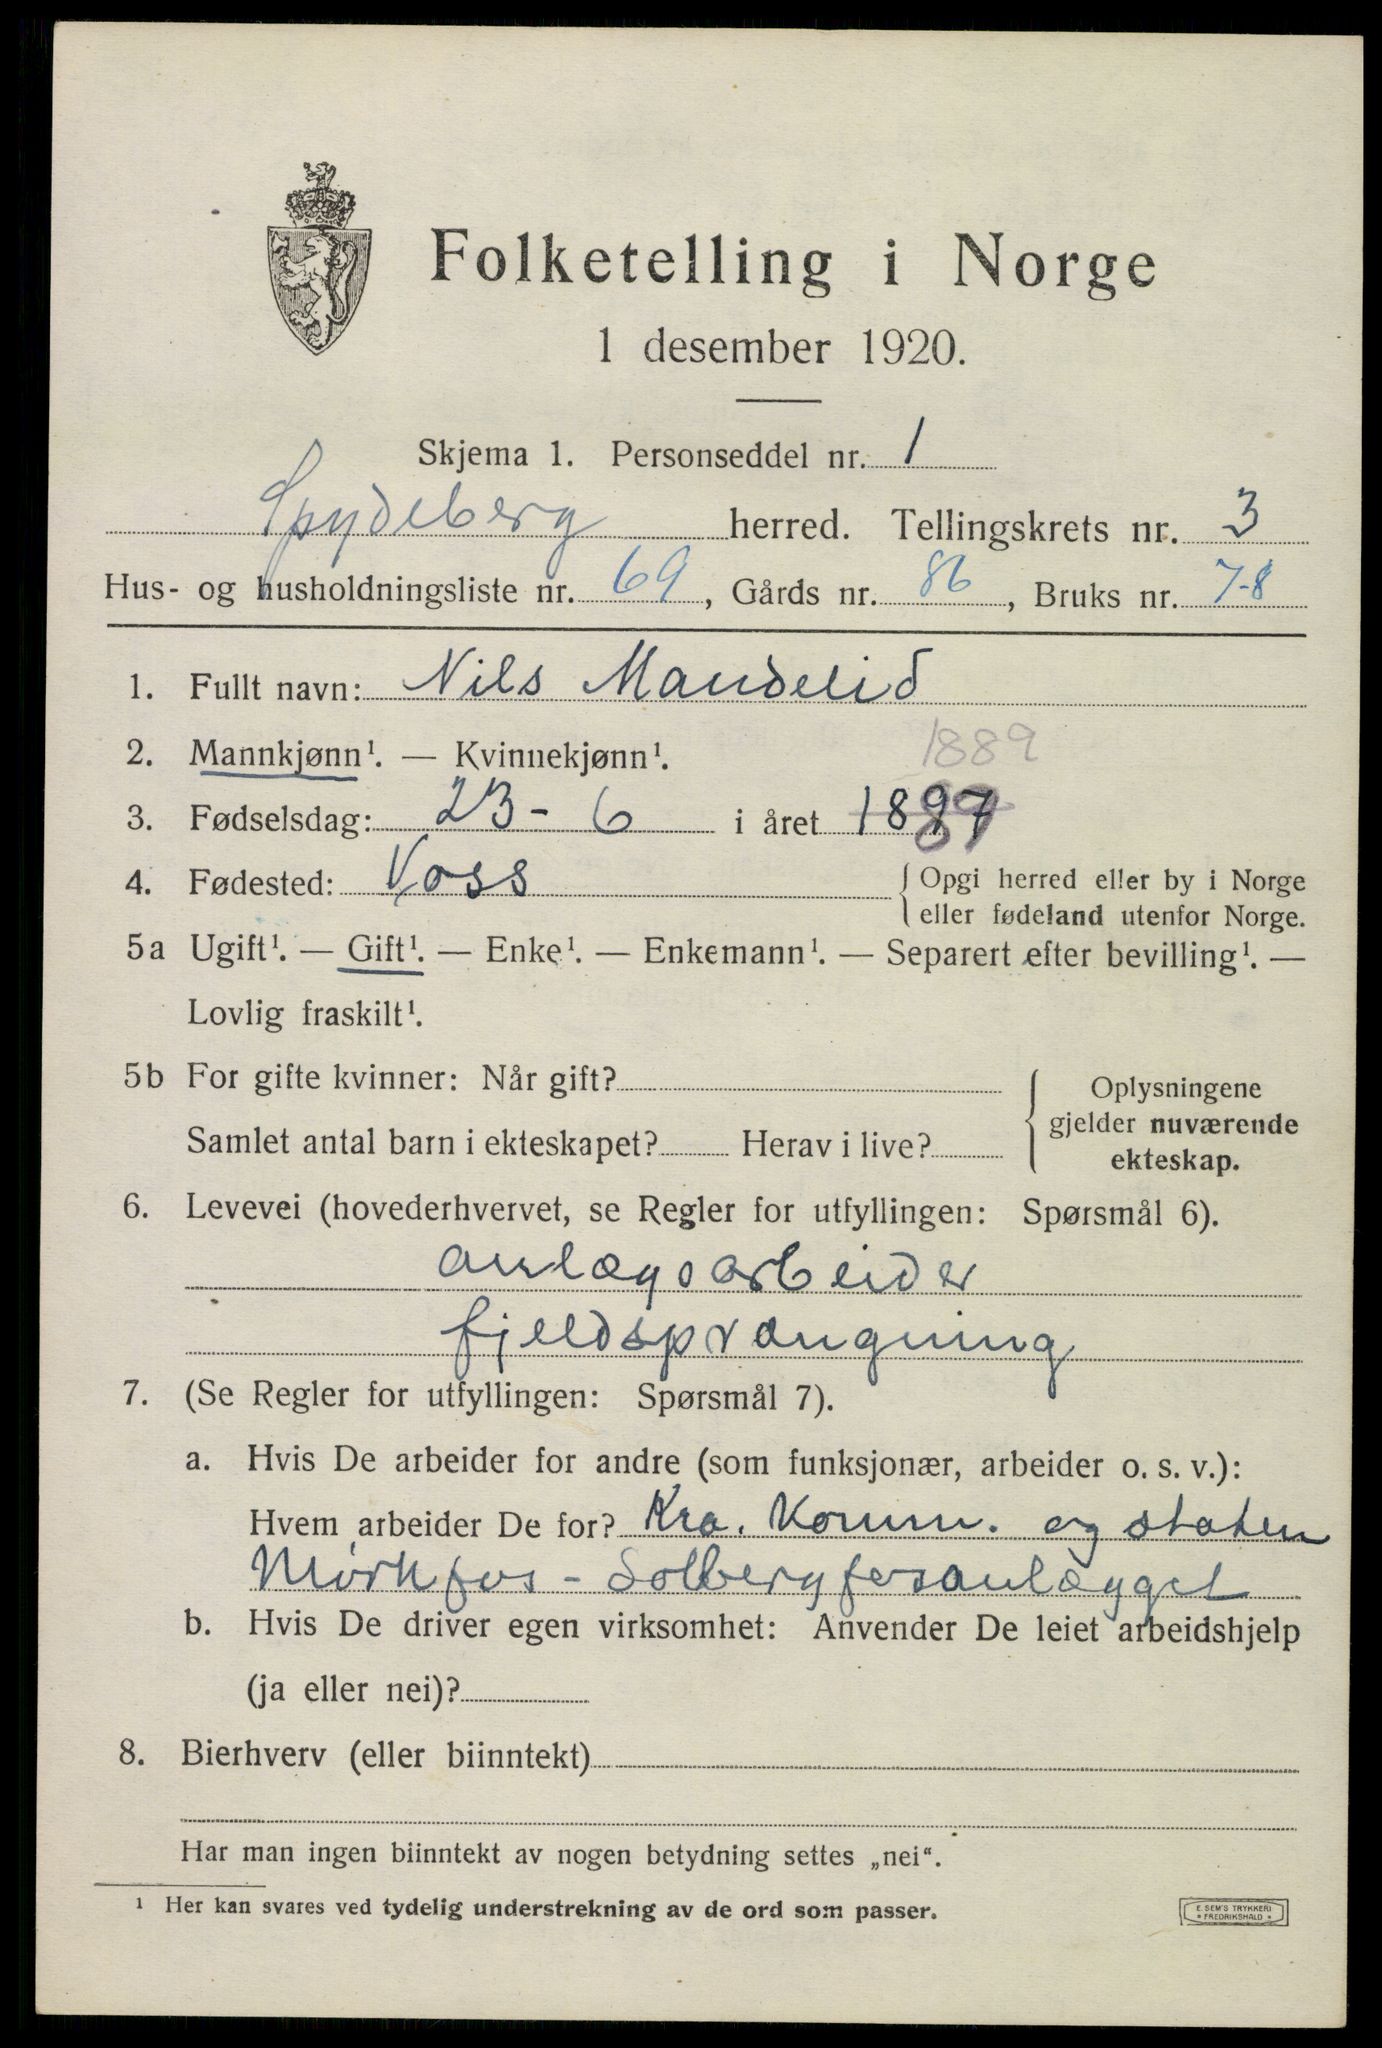 Folketelling i Norge
1 desember 1920.
Skjema 1. Personseddel nr. 1
Spydeberg herred. Tellingskrets nr. 3
Hus- og husholdningsliste nr. 69, Gårds nr. 86, Bruks nr. 7-8
1. Fullt navn: Nils Mandelid
2. Mannkjønn¹. — Kvinnekjønn¹. 1889
3. Fødselsdag: 23 - 6 i året 1897 89
4. Fødested: Voss { Opgi herred eller by i Norge
eller fødeland utenfor Norge.
5a Ugift¹. — Gift¹. — Enke¹. — Enkemann¹. — Separert efter bevilling¹. —
Lovlig fraskilt¹.
5b For gifte kvinner: Når gift? { Oplysningene
gjelder nuværende
ekteskap.
Samlet antal barn i ekteskapet? Herav i live?
6. Levevei (hovederhvervet, se Regler for utfyllingen: Spørsmål 6).
anlægsarbeider
fjeldsprængning
7. (Se Regler for utfyllingen: Spørsmål 7).
a. Hvis De arbeider for andre (som funksjonær, arbeider o. s. v.):
Hvem arbeider De for? Kra. Komm. og staten
Mörkfos - Solbergfosanlægget
b. Hvis De driver egen virksomhet: Anvender De leiet arbeidshjelp
(ja eller nei)?
8. Bierhverv (eller biinntekt)
Har man ingen biinntekt av nogen betydning settes „nei“.
¹ Her kan svares ved tydelig understrekning av de ord som passer.
E. SEM'S TRYKKERI
• FREDRIKSHALD •